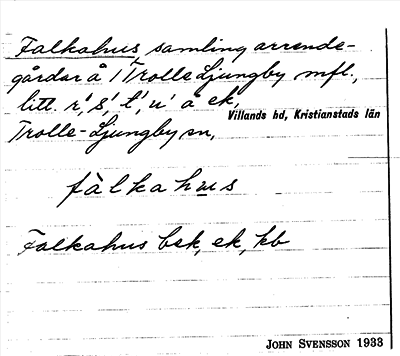 Falkahus, samling arrende-
gårdar å 1 Trolle Ljungby mfl.,
litt. r', s', t', u' å ek,
Villands hd, Kristianstads län
Trolle-Ljungby sn,
fàlkahus
Falkahus bsk, ek, kb
JOHN SVENSSON 1933